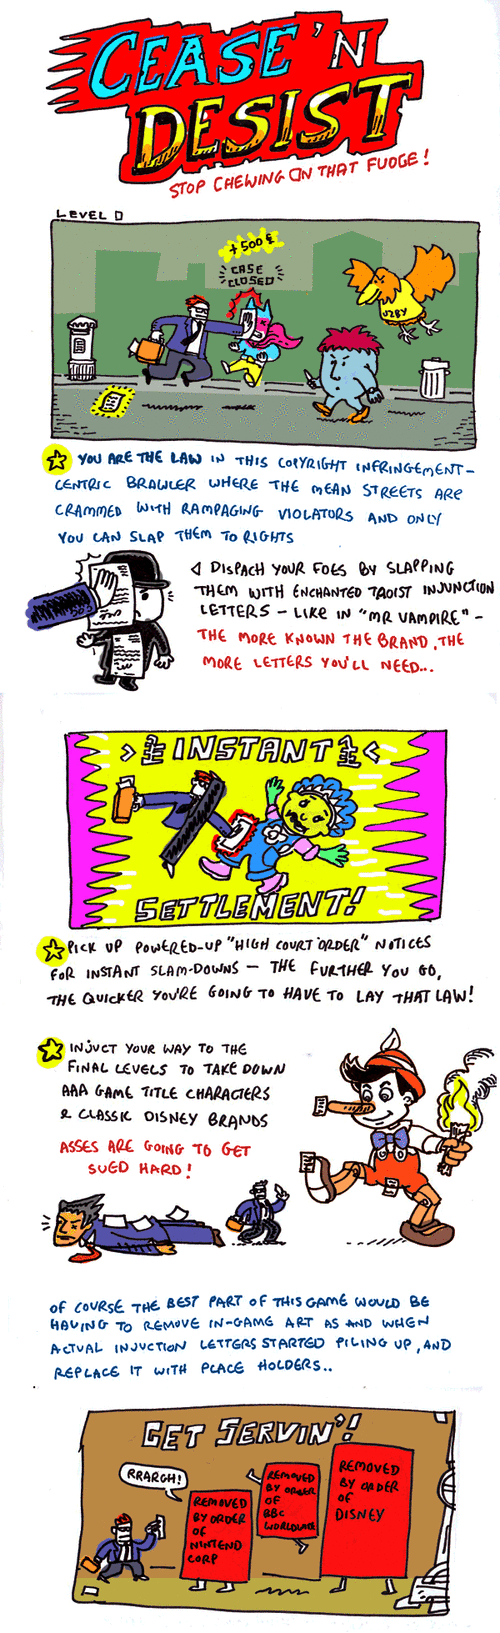 CEASE 'N
DESIST
STOP CHEWING ON THAT FUDGE!
LEVEL 0
+500 €
CASE
CLOSED
UZBY
YOU ARE THE LAW IN THIS COPYRIGHT INFRINGEMENT-
CENTRIC BRAWLER WHERE THE MEAN STREETS ARE
CRAMMED WITH RAMPAGING VIOLATORS AND ONLY
YOU CAN SLAP THEM TO RIGHTS
DISPACH YOUR FOES BY SLAPPING
THEM WITH ENCHANTED TAOIST INJUNCTION
LETTERS - LIKE IN "MR VAMPIRE" -
THE MORE KNOWN THE BRAND, THE
MORE LETTERS YOU'LL NEED...
INSTANT
SETTLEMENT!
PICK UP POWERED-UP "HIGH COURT ORDER" NOTICES
FOR INSTANT SLAM-DOWNS - THE FURTHER YOU GO,
THE QUICKER YOU'RE GOING TO HAVE TO LAY THAT LAW!
INJUCT YOUR WAY TO THE
FINAL LEVELS TO TAKE DOWN
AAA GAME TITLE CHARACTERS
& CLASSIC DISNEY BRANDS
ASSES ARE GOING TO GET
SUED HARD!
OF COURSE THE BEST PART OF THIS GAME WOULD BE
HAVING TO REMOVE IN-GAME ART AS AND WHEN
ACTUAL INJUCTION LETTERS STARTED PILING UP, AND
REPLACE IT WITH PLACE HOLDERS..
GET SERVIN'!
RRARGH!
REMOVED
BY ORDER
OF
NINTEND
CORP
REMOVED
BY ORDER
OF
BBC
WORLDWIDE
REMOVED
BY ORDER
OF
DISNEY